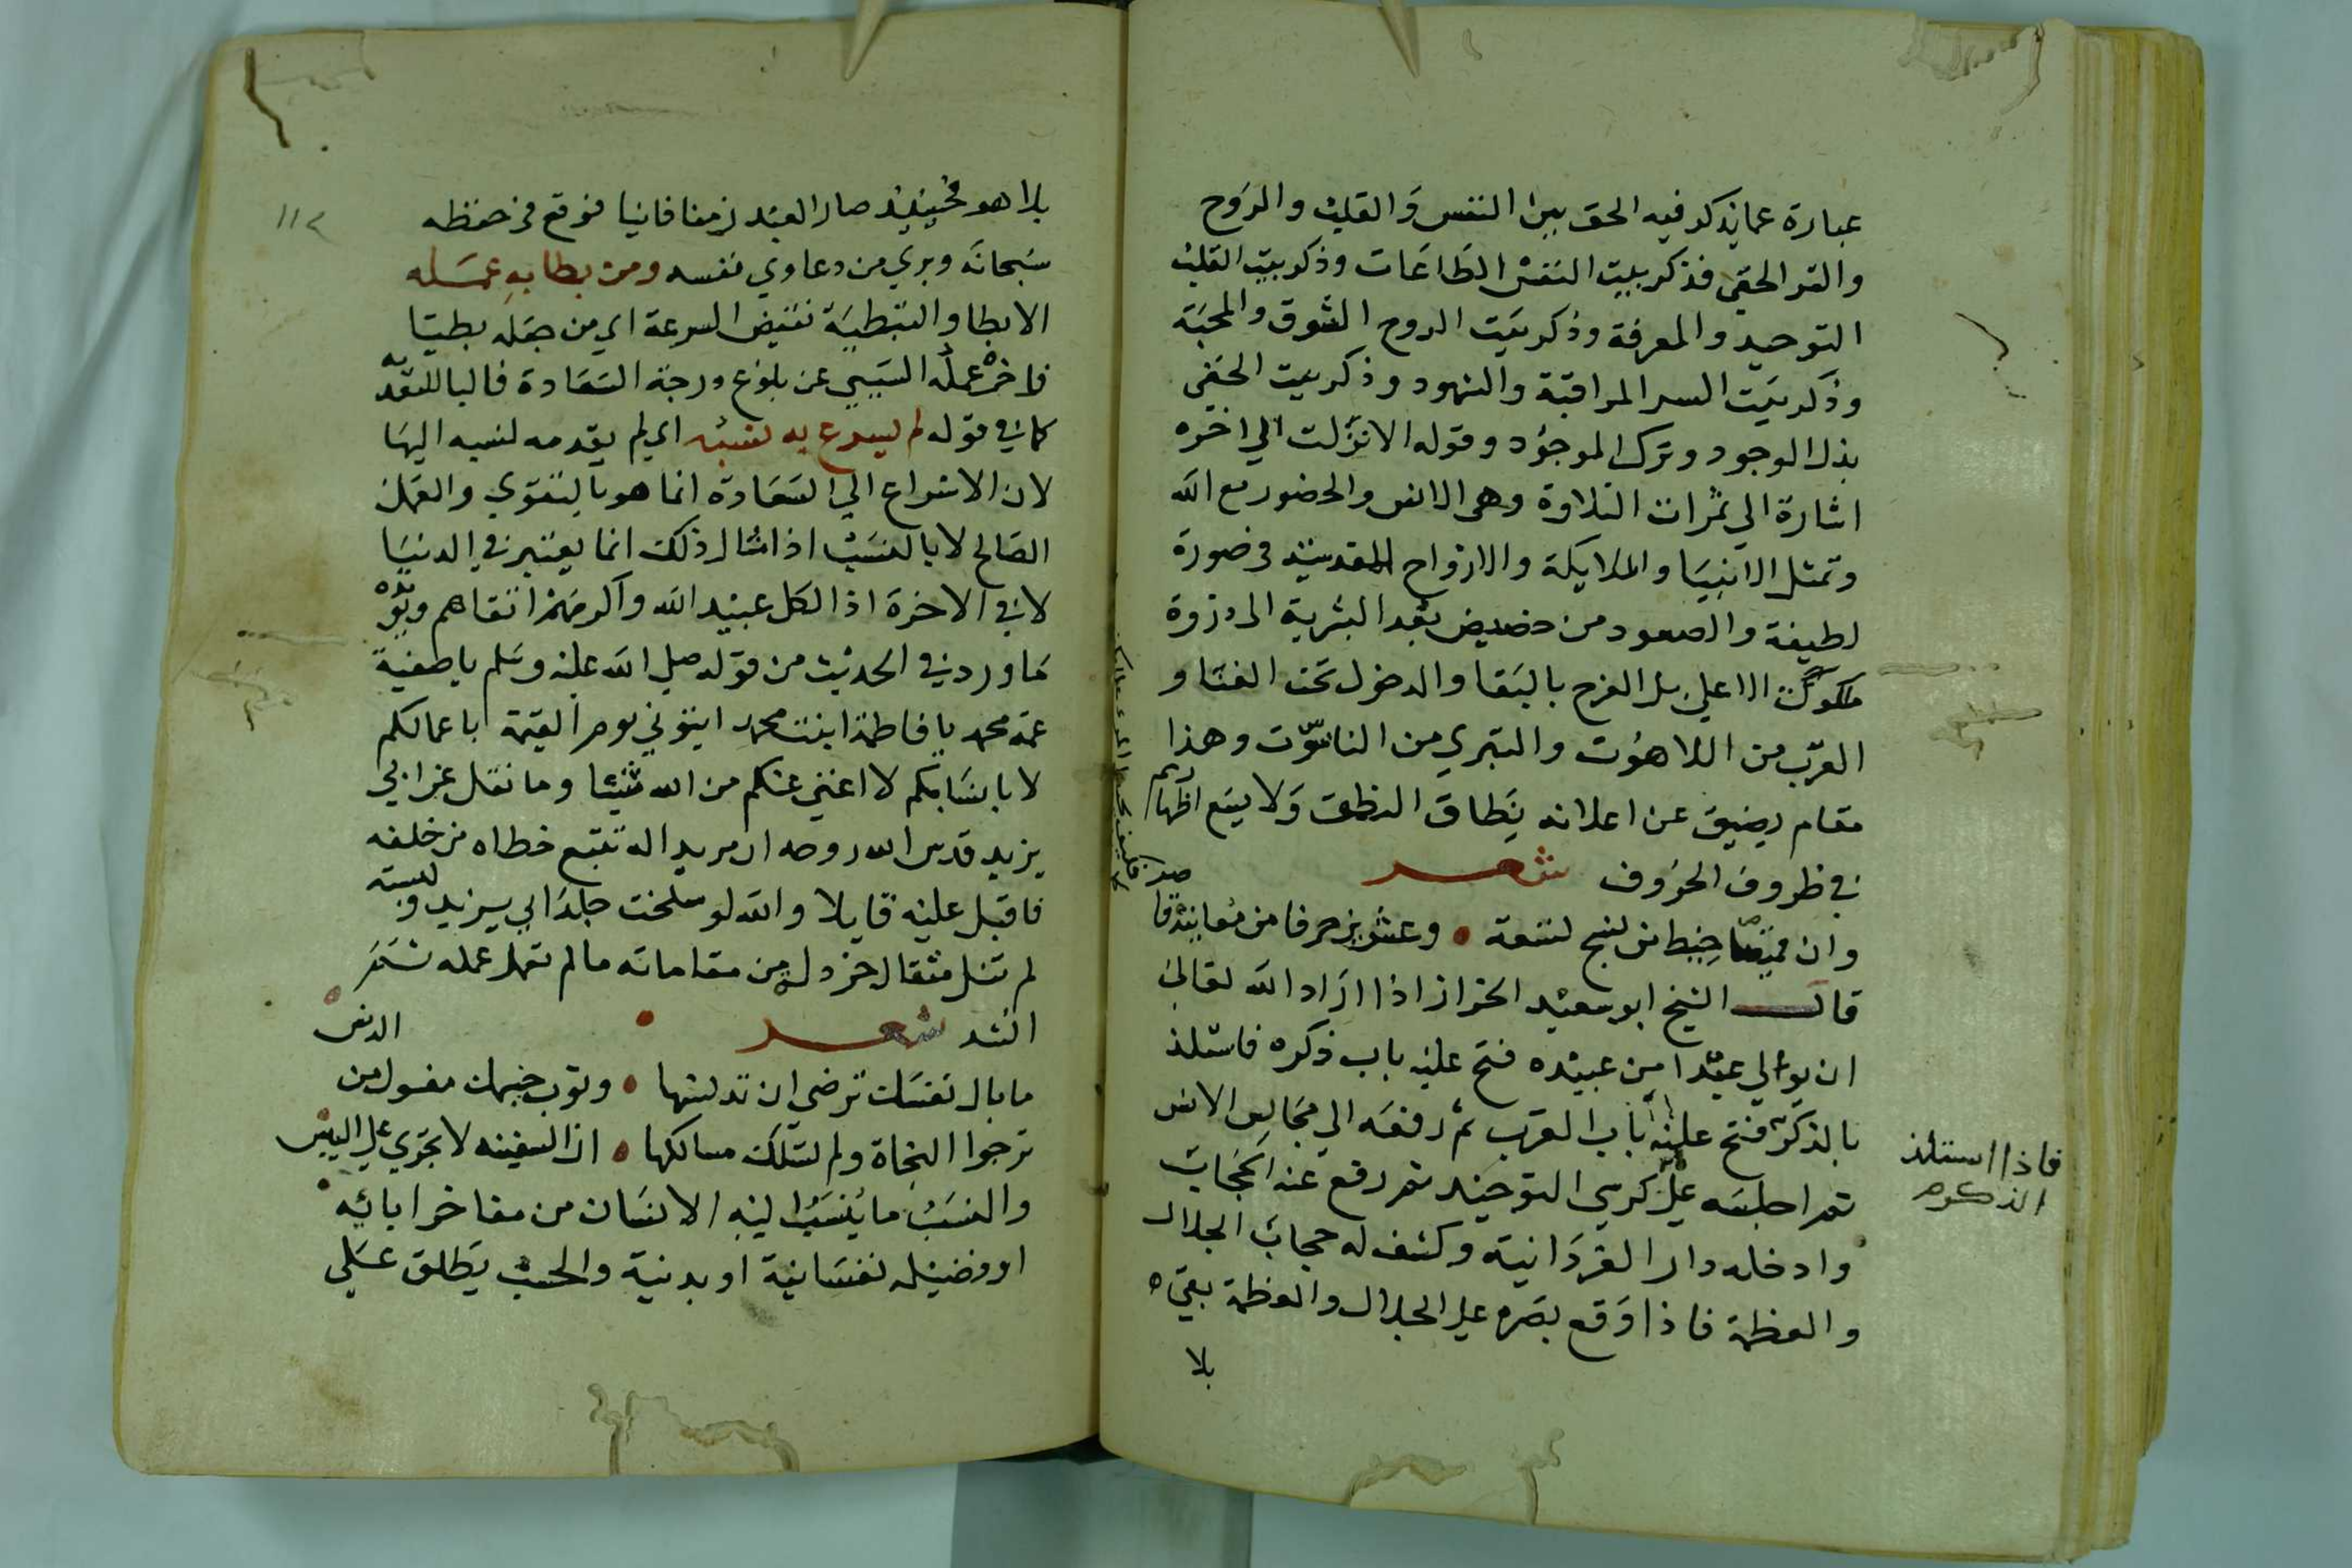 عبارة عما يذكر فيه الحق بين النفس والقلب والروح
والسر الخفي فذكر بيت النفس الطاعات وذكر بيت القلب
التوحيد والمعرفة وذكر بيت الروح الشوق والمحبة
وذكر بيت السر المراقبة والشهود وذكر بيت الخفي
بذل الوجود وترك الموجود وقوله الا نزلت الي اخره
اشارة الي ثمرات التلاوة وهى الانس والحضور مع الله
وتمثل الانبيا والملايكة والارواح المقدسة في صورة
لطيفة والصعود من حضيض بعد البشرية الى ذروة
ملكوت الاعلي بل الفرح بالبقا والدخول تحت الفنا و
القرب من اللاهوت والتبري من الناسوت وهذا
مقام يضيق عن اعلانه نطاق النطق ولا يسع اظهاره
في ظروف الحروف شعر
وان قميصا خيط من نسج تسعة • وعشرين حرفا من معانيه قاصر
قال الشيخ ابو سعيد الخراز اذا اراد الله تعالي
ان يوالي عبدا من عبيده فتح عليه باب ذكره فاستلذ
بالذكر فتح عليه باب القرب ثم رفعه الي مجالس الانس
ثم اجلسه علي كرسي التوحيد ثم رفع عنه الحجاب
وادخله دار الفردانية وكشف له حجاب الجلال
والعظمة فاذا وقع بصره علي الجلال والعظمة بقي
بلا
فاذا استلذ
الذكر
١١٢
بلا هو فحينيذ صار العبد زمنا فانيا فوقع في حفظه
سبحانه وبري من دعاوي نفسه ومن بطا به عمله
الابطا والتبطية نقيض السرعة اي من جعله بطيا
فاخر عمله السيي عن بلوغ درجة السعادة فالبا للتعدية
كما في قوله لم يسرع به نسبه اي لم يقدمه نسبه اليها
لان الاسراع الي السعادة انما هو بالتقوي والعمل
الصالح لا بالنسب اذ امثال ذلك انما يعتبر في الدنيا
لا في الاخرة اذ الكل عبيد الله واكرمهم اتقاهم ويؤيده
ما ورد في الحديث من قوله صلي الله عليه وسلم يا صفية
عمة محمد يا فاطمة ابنت محمد ايتوني يوم القيمة باعمالكم
لا بانسابكم لا اغني عنكم من الله شيئا وما نقل عن ابي
يزيد قدس الله روحه ان مريدا له تتبع خطاه من خلفه
فاقبل عليه قايلا والله لو سلخت جلد ابي يزيد ولبسته
لم تنل مثقال خردل من مقاماته ما لم تعمل عمله ثم
انشد شعر
ما بال نفسك ترضي ان تدنسها • وثوب جسمك مغسول من الدنس
ترجوا النجاة ولم تسلك مسالكها • ان السفينه لا تجري علي اليبس
والنسب ما ينسب اليه الانسان من مفاخر ابائه
او فضيله نفسانية او بدنية والحسب يطلق علي